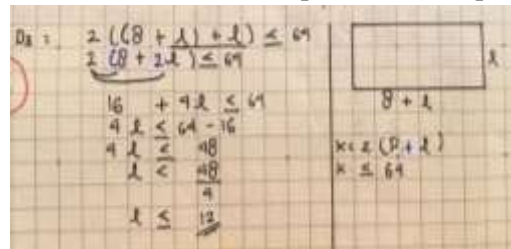 D3 : 2 ((8 + l) + l) ≤ 64
2 (8 + 2l) ≤ 64
16 + 4l ≤ 64
4 l ≤ 64 - 16
4 l ≤ 48
l ≤ 48
4
l ≤ 12
l
8 + l
K = 2 (P + l)
K ≤ 64